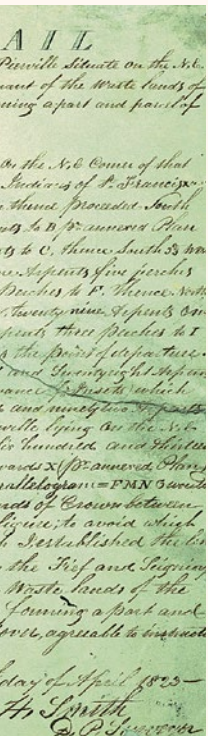 AIL
Pierville Situate on the N.E.
uant of the Waste lands of
ming a part and parcel of
On the N.E Corner of that
Indians of St. Francis
thence proceeded South
nts to B pr. annexed Plan
ts to C, thence South 33 West
ne Arpents five perches
Perches to F. Thence North
Twenty nine Arpents One
pents three Perches to I
the point of departure
and Twenty eight Arpents
vance which
and ninety two Arpents
ville lying On the N.E.
Six hundred and thirteen
wards X (pr. annexed Plan)
rallelogram = FMN 3
nds of Crown between
to avoid which
I established the
the Fief and Seigniory
Waste lands of the
forming a part and
over, agreeable to
day of April 1823
H Smith
D. P. Surveyor